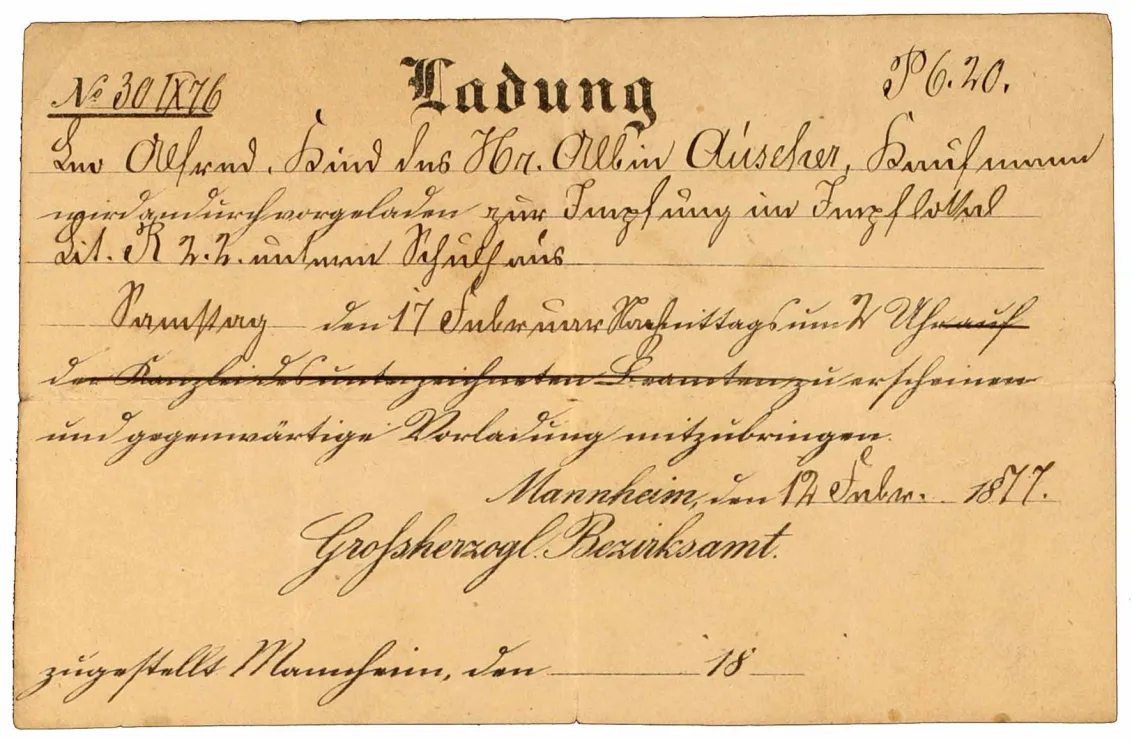 No 30 IX 76
Ladung
P 6. 20.
Leo Alfred, Kind des Hr. Albin Aúscher, Kaufmann
wird andurch vorgeladen zur Impfung im Impflokal
Lit. R 2. 2. untern Schulhaús
Samstag den 17 Februar Nachmittags um 2 Uhr auf
der Kanzlei des unterzeichneten Beamten zu erscheinen
und gegenwärtige Vorladung mitzubringen.
Mannheim, den 12 Febr. 1877.
Grossherzogl. Bezirksamt.
zugestellt Mannheim, den 18